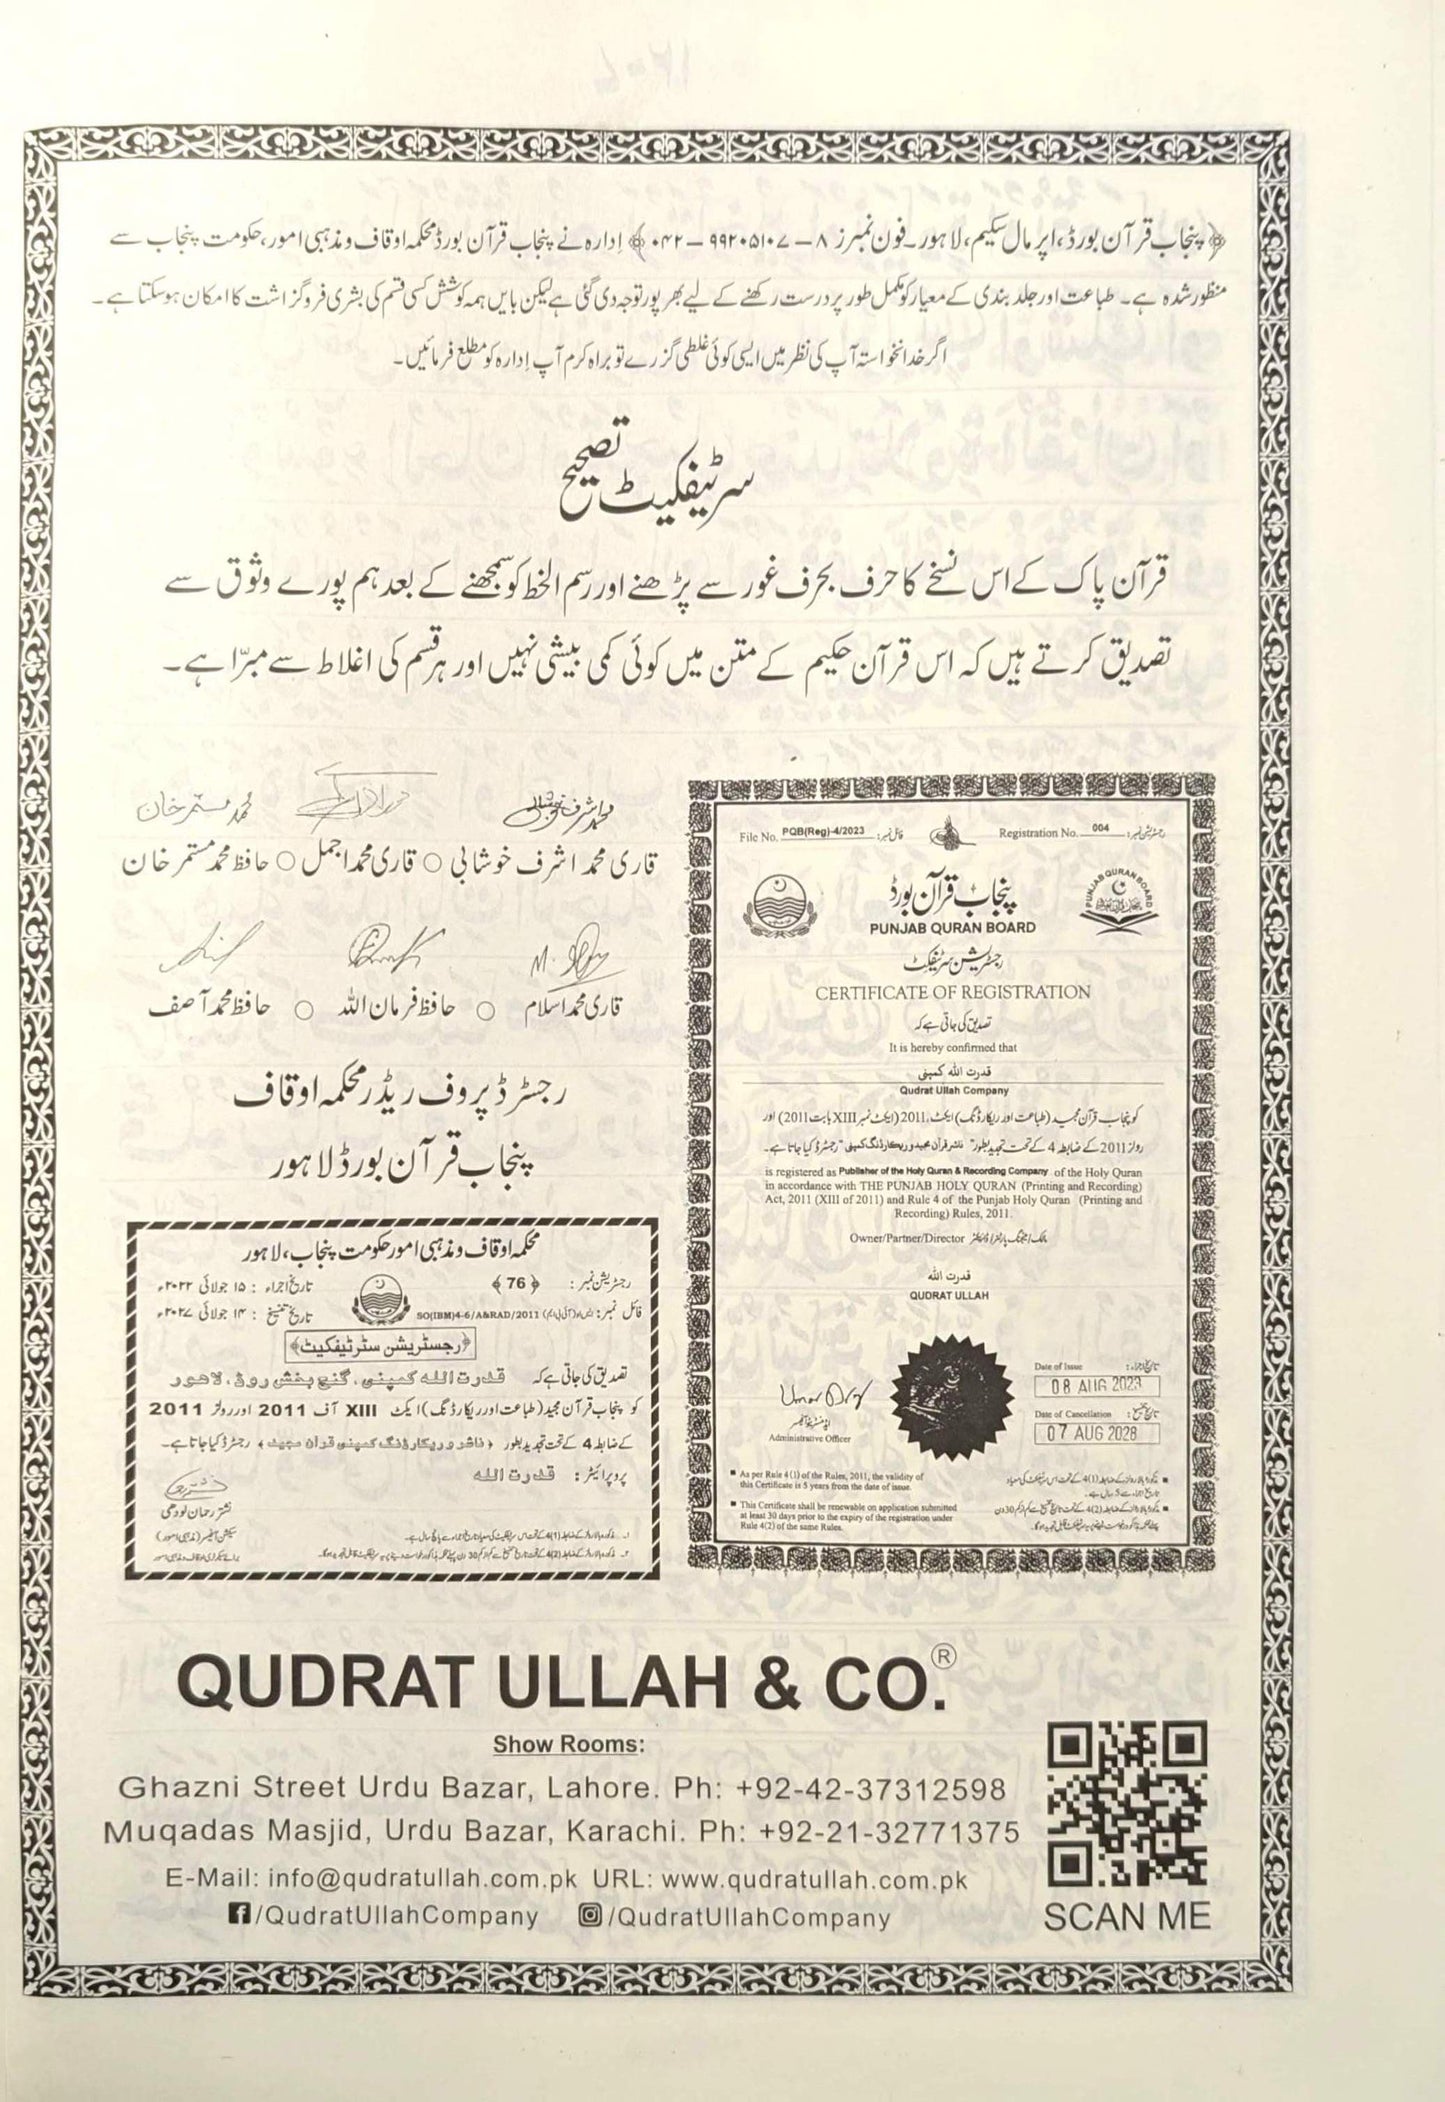 ﴿پنجاب قرآن بورڈ، اپر مال سکیم، لاہور۔ فون نمبرز ۸ – ۹۹۲۰۵۱۰۷ – ۰۴۲﴾ اِدارہ نے پنجاب قرآن بورڈ محکمہ اوقاف و مذہبی امور، حکومت پنجاب سے
منظور شدہ ہے۔ طباعت اور جلد بندی کے معیار کو مکمل طور پر درست رکھنے کے لیے بھرپور توجہ دی گئی ہے لیکن بایں ہمہ کوشش کسی قسم کی بشری فروگزاشت کا امکان ہو سکتا ہے۔
اگر خدانخواستہ آپ کی نظر میں ایسی کوئی غلطی گزرے تو براہ کرم آپ اِدارہ کو مطلع فرمائیں۔
سرٹیفکیٹ تصحیح
قرآن پاک کے اس نسخے کا حرف بحرف غور سے پڑھنے اور رسم الخط کو سمجھنے کے بعد ہم پورے وثوق سے
تصدیق کرتے ہیں کہ اس قرآن حکیم کے متن میں کوئی کمی بیشی نہیں اور ہر قسم کی اغلاط سے مبرّا ہے۔
محمد مستمر خان
قاری محمد اشرف خوشابی ○ قاری محمد اجمل ○ حافظ محمد مستمر خان
قاری محمد اسلام ○ حافظ فرمان اللہ ○ حافظ محمد آصف
رجسٹرڈ پروف ریڈر محکمہ اوقاف
پنجاب قرآن بورڈ لاہور
محکمہ اوقاف و مذہبی امور حکومت پنجاب، لاہور
رجسٹریشن نمبر: ﴿76﴾ تاریخ اجراء: ۱۵ جولائی ۲۰۲۲ء
فائل نمبر: ایس او (آئی بی ایم) SO(IBM)4-6/A&RAD/2011 تاریخ تنسیخ: ۱۴ جولائی ۲۰۲۷ء
﴿رجسٹریشن سرٹیفکیٹ﴾
تصدیق کی جاتی ہے کہ قدرت اللہ کمپنی، گنج بخش روڈ، لاہور
کو پنجاب قرآن مجید (طباعت اور ریکارڈنگ) ایکٹ XIII آف 2011 اور رولز 2011
کے ضابطہ 4 کے تحت تجدید بطور ﴿ناشر و ریکارڈنگ کمپنی قرآن مجید﴾ رجسٹرڈ کیا جاتا ہے۔
پروپرائیٹر: قدرت اللہ
نشتر رحمان لودھی
سیکشن آفیسر (مذہبی امور)
File No. PQB(Reg)-4/2023 فائل نمبر: Registration No. 004 رجسٹریشن نمبر:
PUNJAB QURAN BOARD
پنجاب قرآن بورڈ
PUNJAB QURAN BOARD
رجسٹریشن سرٹیفکیٹ
CERTIFICATE OF REGISTRATION
تصدیق کی جاتی ہے کہ
It is hereby confirmed that
قدرت اللہ کمپنی
Qudrat Ullah Company
کو پنجاب قرآن مجید (طباعت اور ریکارڈنگ) ایکٹ، 2011 (ایکٹ نمبر XIII بابت 2011) اور
رولز 2011 کے ضابطہ 4 کے تحت تجدید بطور "ناشر قرآن مجید و ریکارڈنگ کمپنی" رجسٹرڈ کیا جاتا ہے۔
is registered as Publisher of the Holy Quran & Recording Company of the Holy Quran
in accordance with THE PUNJAB HOLY QURAN (Printing and Recording)
Act, 2011 (XIII of 2011) and Rule 4 of the Punjab Holy Quran (Printing and
Recording) Rules, 2011.
Owner/Partner/Director
قدرت اللہ
QUDRAT ULLAH
Date of Issue تاریخ اجراء:
08 AUG 2023
Date of Cancellation تاریخ تنسیخ:
07 AUG 2028
Administrative Officer
As per Rule 4(1) of the Rules, 2011, the validity of
this Certificate is 5 years from the date of issue.
This Certificate shall be renewable on application submitted
at least 30 days prior to the expiry of the registration under
Rule 4(2) of the same Rules.
QUDRAT ULLAH & CO.®
Show Rooms:
Ghazni Street Urdu Bazar, Lahore. Ph: +92-42-37312598
Muqadas Masjid, Urdu Bazar, Karachi. Ph: +92-21-32771375
E-Mail: info@qudratullah.com.pk URL: www.qudratullah.com.pk
/QudratUllahCompany /QudratUllahCompany
SCAN ME